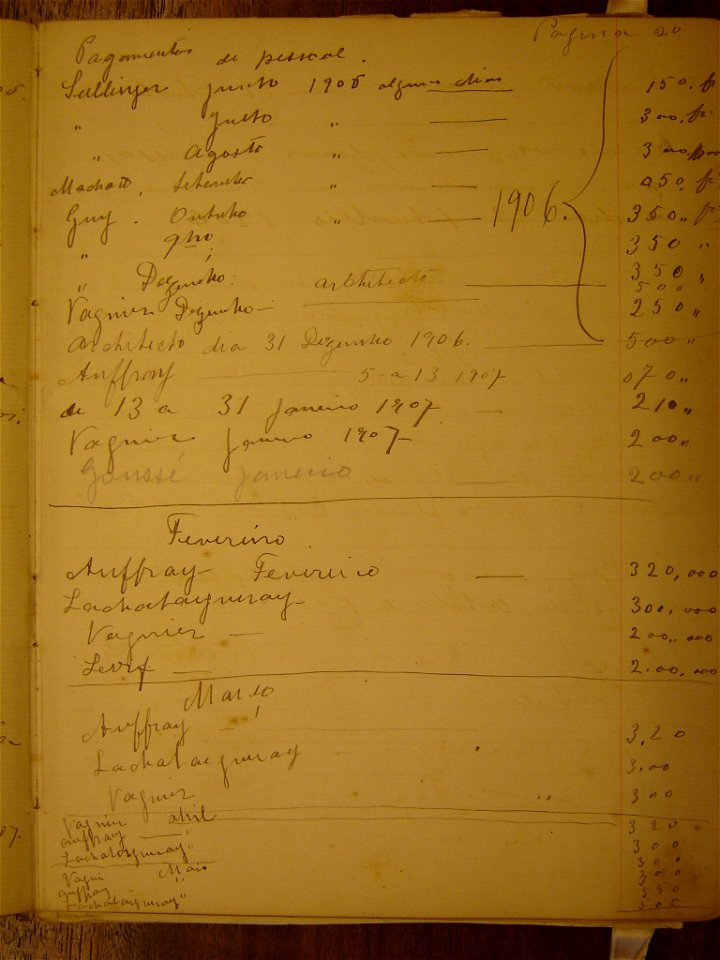 Pagina 20
Pagamentos de pessoal.
Sallinger junho 1906 alguns dias 150. fr
" Julho " 300. fr
" Agosto " 300,
Machado, Setembro " 050, fr
Guy. Outubro " 350,, fr
" 9bro 350 "
1906.
" Dezembro. architecto 350 ,,
500
Vagnier Dezembro 250 ,,
Architecto dia 31 Dezembro 1906. 500 ,,
Auffray 5 a 13 1907 070 ,,
de 13 a 31 Janeiro 1907 — 210,,
Vagnier Janeiro 1907 200,,
Goussé Janeiro 200 ,,
Fevereiro
Auffray Fevereiro — 320,000
Lachataigneray 300,000
Vagnier — 200,,000
Levy — 200,000
Março
Auffray — 3,20
Lachataigneray 3,00
Vagnier 300
Vagnier abril 320
Auffray — " 300
Lachataigneray " 300
Vagni Maio 300
Auffray "
Lachataigneray " 300